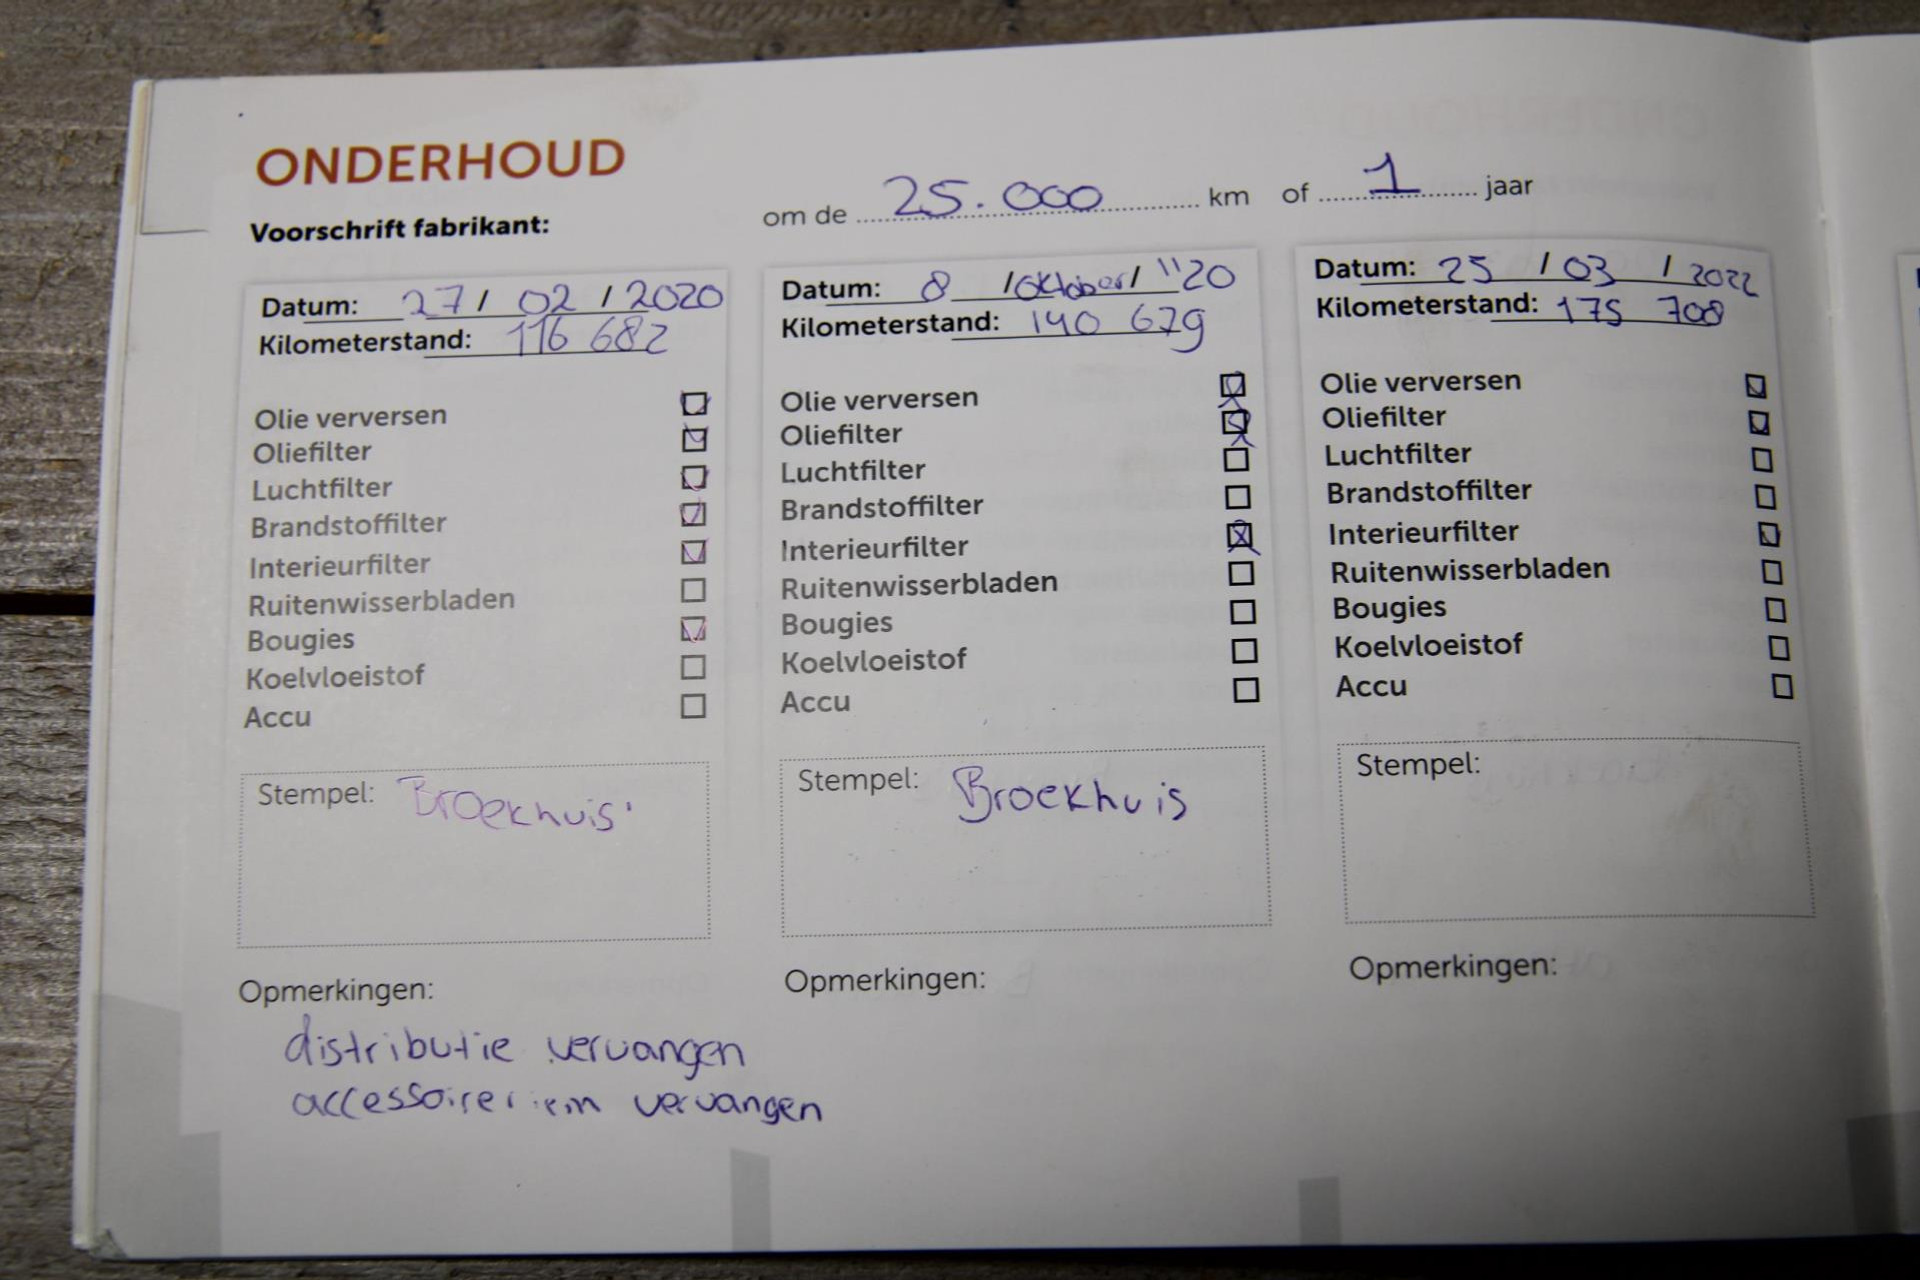 ONDERHOUD
Voorschrift fabrikant: om de 25.000 km of 1 jaar
Datum: 27 / 02 / 2020
Kilometerstand: 116 682
Olie verversen
Oliefilter
Luchtfilter
Brandstoffilter
Interieurfilter
Ruitenwisserbladen
Bougies
Koelvloeistof
Accu
Stempel: Broekhuis
Opmerkingen:
distributie vervangen
accessoireriem vervangen
Datum: 8 / oktober / "20
Kilometerstand: 140 679
Olie verversen
Oliefilter
Luchtfilter
Brandstoffilter
Interieurfilter
Ruitenwisserbladen
Bougies
Koelvloeistof
Accu
Stempel: Broekhuis
Opmerkingen:
Datum: 25 / 03 / 2022
Kilometerstand: 175 708
Olie verversen
Oliefilter
Luchtfilter
Brandstoffilter
Interieurfilter
Ruitenwisserbladen
Bougies
Koelvloeistof
Accu
Stempel:
Opmerkingen: